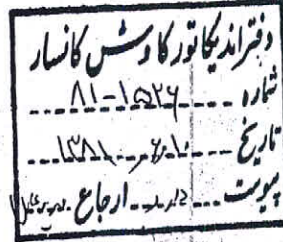 دفتر اندیکاتور کاوش کانسار
شماره ۸۱-۱۵۲۶
تاریخ ۱۳۸۱/۶/۱۰
پیوست دارد ارجاع مدیر عامل